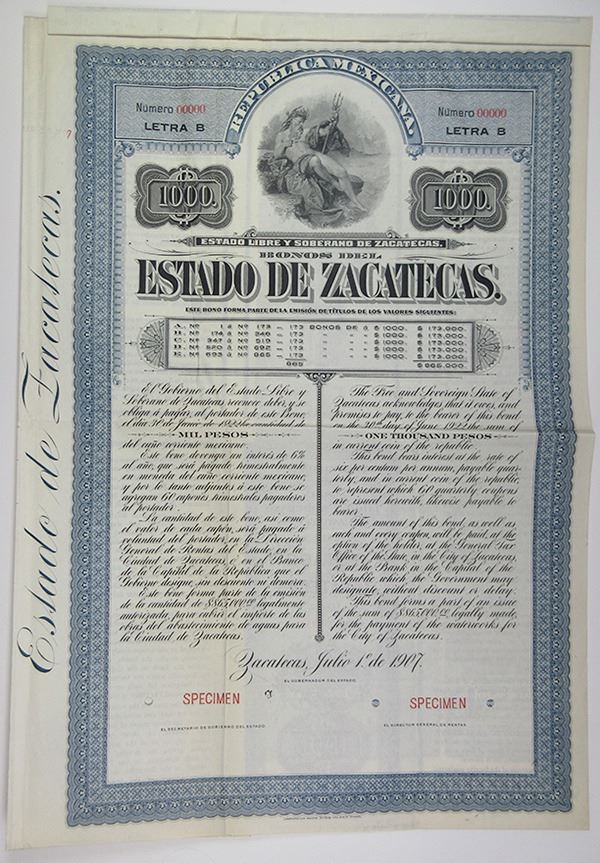 REPUBLICA MEXICANA.
Número 00000
LETRA B
Número 00000
LETRA B
1000.
1000.
ESTADO LIBRE Y SOBERANO DE ZACATECAS.
BONOS DEL
ESTADO DE ZACATECAS.
ESTE BONO FORMA PARTE DE LA EMISIÓN DE TÍTULOS DE LOS VALORES SIGUIENTES:
A. Nº 1 á Nº 173 — 173 BONOS DE á $1000. $173,000.
B. Nº 174 á Nº 346 — 173 " " " $1000. $173,000.
C. Nº 347 á Nº 519 — 173 " " " $1000. $173,000.
D. Nº 520 á Nº 692 — 173 " " " $1000. $173,000.
E. Nº 693 á Nº 865 — 173 " " " $1000. $173,000.
865 $865,000.
El Gobierno del Estado Libre y
Soberano de Zacatecas reconoce deber, y se
obliga á pagar, al portador de este Bono,
el día 30 de Junio de 1922 la cantidad de
MIL PESOS
del cuño corriente mexicano.
Este bono devenga un interés de 6%
al año, que será pagado trimestralmente
en moneda del cuño corriente mexicano,
y por lo tanto adjuntos á este bono se
agregan 60 cupones trimestrales pagaderos
al portador.
La cantidad de este bono, así como
el valor de cada cupón, será pagado á
voluntad del portador, en la Dirección
General de Rentas del Estado, en la
Ciudad de Zacatecas, o en el Banco
de la Capital de la República que el
Gobierno designe, sin descuento ni demora.
Este bono forma parte de la emisión
de la cantidad de $865,000.00 legalmente
autorizada para cubrir el importe de las
obras del abastecimiento de aguas para
la Ciudad de Zacatecas.
The Free and Sovereign State of
Zacatecas acknowledges that it owes, and
promises to pay, to the bearer of this bond
on the 30th day of June 1922 the sum of
ONE THOUSAND PESOS
in current coin of the republic.
This bond bears interest at the rate of
six per centum per annum, payable quar-
terly, and in current coin of the republic,
to represent which 60 quarterly coupons
are issued herewith, likewise payable to
bearer.
The amount of this bond, as well as
each and every coupon, will be paid, at the
option of the holder, at the General Tax
Office of the State, in the City of Zacatecas,
or at the Bank in the Capital of the
Republic which the Government may
designate, without discount or delay.
This bond forms a part of an issue
of the sum of $865,000.00 legally made
for the payment of the waterworks for
the City of Zacatecas.
Zacatecas, Julio 1º de 1907.
EL GOBERNADOR DEL ESTADO.
SPECIMEN
SPECIMEN
EL SECRETARIO DE GOBIERNO DEL ESTADO.
EL DIRECTOR GENERAL DE RENTAS.
Estado de Zacatecas.